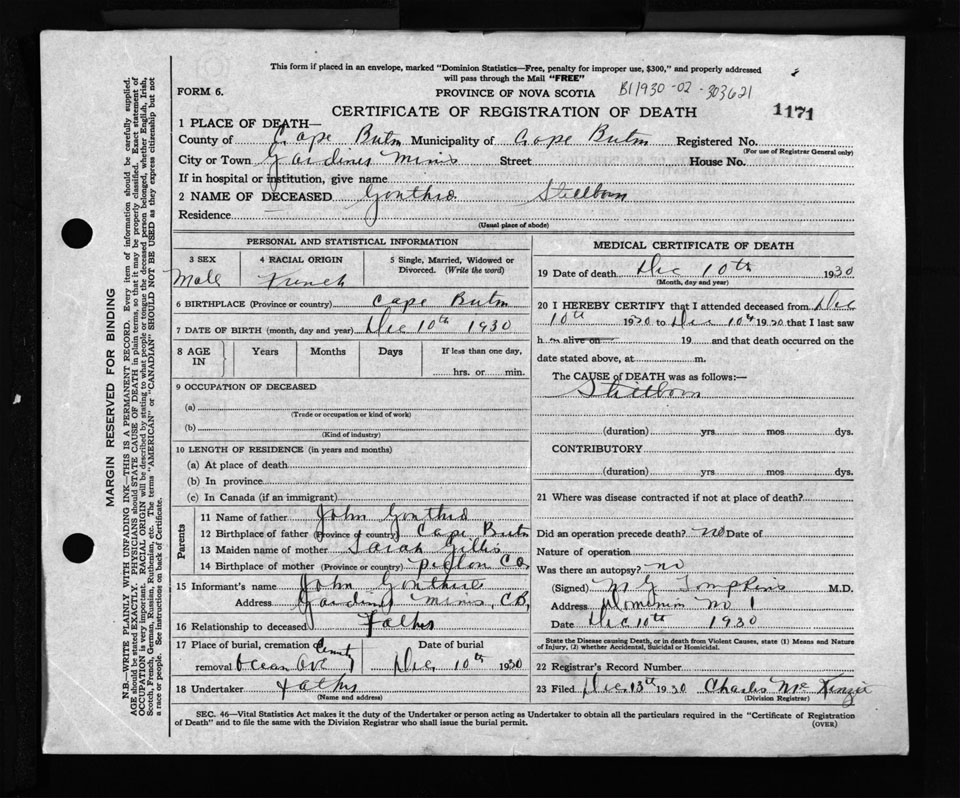 This form if placed in an envelope, marked "Dominion Statistics—Free, penalty for improper use, $300," and properly addressed
will pass through the Mail "FREE"
FORM 6.
PROVINCE OF NOVA SCOTIA
B11930-02-303621
CERTIFICATE OF REGISTRATION OF DEATH
1171
1 PLACE OF DEATH—
County of Cape Breton Municipality of Cape Breton Registered No.
(For use of Registrar General only)
City or Town Gardiner Mines Street House No.
If in hospital or institution, give name
2 NAME OF DECEASED Gonthro Stillborn
Residence
(Usual place of abode)
PERSONAL AND STATISTICAL INFORMATION
3 SEX 4 RACIAL ORIGIN 5 Single, Married, Widowed or
Divorced. (Write the word)
Male French
6 BIRTHPLACE (Province or country) Cape Breton
7 DATE OF BIRTH (month, day and year) Dec 10th 1930
8 AGE IN Years Months Days If less than one day,
hrs. or min.
9 OCCUPATION OF DECEASED
(a)
(Trade or occupation or kind of work)
(b)
(Kind of industry)
10 LENGTH OF RESIDENCE (in years and months)
(a) At place of death
(b) In province
(c) In Canada (if an immigrant)
Parents
11 Name of father John Gonthro
12 Birthplace of father (Province or country) Cape Breton
13 Maiden name of mother Sarah Gillis
14 Birthplace of mother (Province or country)
15 Informant's name John Gonthro
Address Gardiner Mines C.B.
16 Relationship to deceased Father
17 Place of burial, cremation Date of burial
removal Dec 10th 1930
18 Undertaker Father
(Name and address)
MEDICAL CERTIFICATE OF DEATH
19 Date of death Dec 10th 1930
(Month, day and year)
20 I HEREBY CERTIFY that I attended deceased from Dec
10th 1930 to Dec 10th 1930 that I last saw
h alive on 19 and that death occurred on the
date stated above, at m.
The CAUSE of DEATH was as follows:—
Stillborn
(duration) yrs mos dys.
CONTRIBUTORY
(duration) yrs mos dys.
21 Where was disease contracted if not at place of death?
Did an operation precede death? no Date of
Nature of operation
Was there an autopsy? no
(Signed) M G Tompkins M.D.
Address Dominion No 1
Date Dec 10th 1930
State the Disease causing Death, or in death from Violent Causes, state (1) Means and Nature
of Injury, (2) whether Accidental, Suicidal or Homicidal.
22 Registrar's Record Number
23 Filed Dec 13th 1930 Charles McKenzie
(Division Registrar)
SEC. 46—Vital Statistics Act makes it the duty of the Undertaker or person acting as Undertaker to obtain all the particulars required in the "Certificate of Registration
of Death" and to file the same with the Division Registrar who shall issue the burial permit.
(OVER)
MARGIN RESERVED FOR BINDING
N.B.—WRITE PLAINLY WITH UNFADING INK—THIS IS A PERMANENT RECORD. Every item of information should be carefully supplied.
AGE should be stated EXACTLY. PHYSICIANS should STATE CAUSE OF DEATH in plain terms, so that it may be properly classified. Exact statement of
OCCUPATION is very important. RACIAL ORIGIN will be described by stating to what people or tongue the deceased person belonged, whether English, Irish,
Scotch, French, German, Russian, Ruthenian, etc. The terms "AMERICAN" or "CANADIAN" SHOULD NOT BE USED as they express citizenship but not
a race or people. See instructions on back of Certificate.